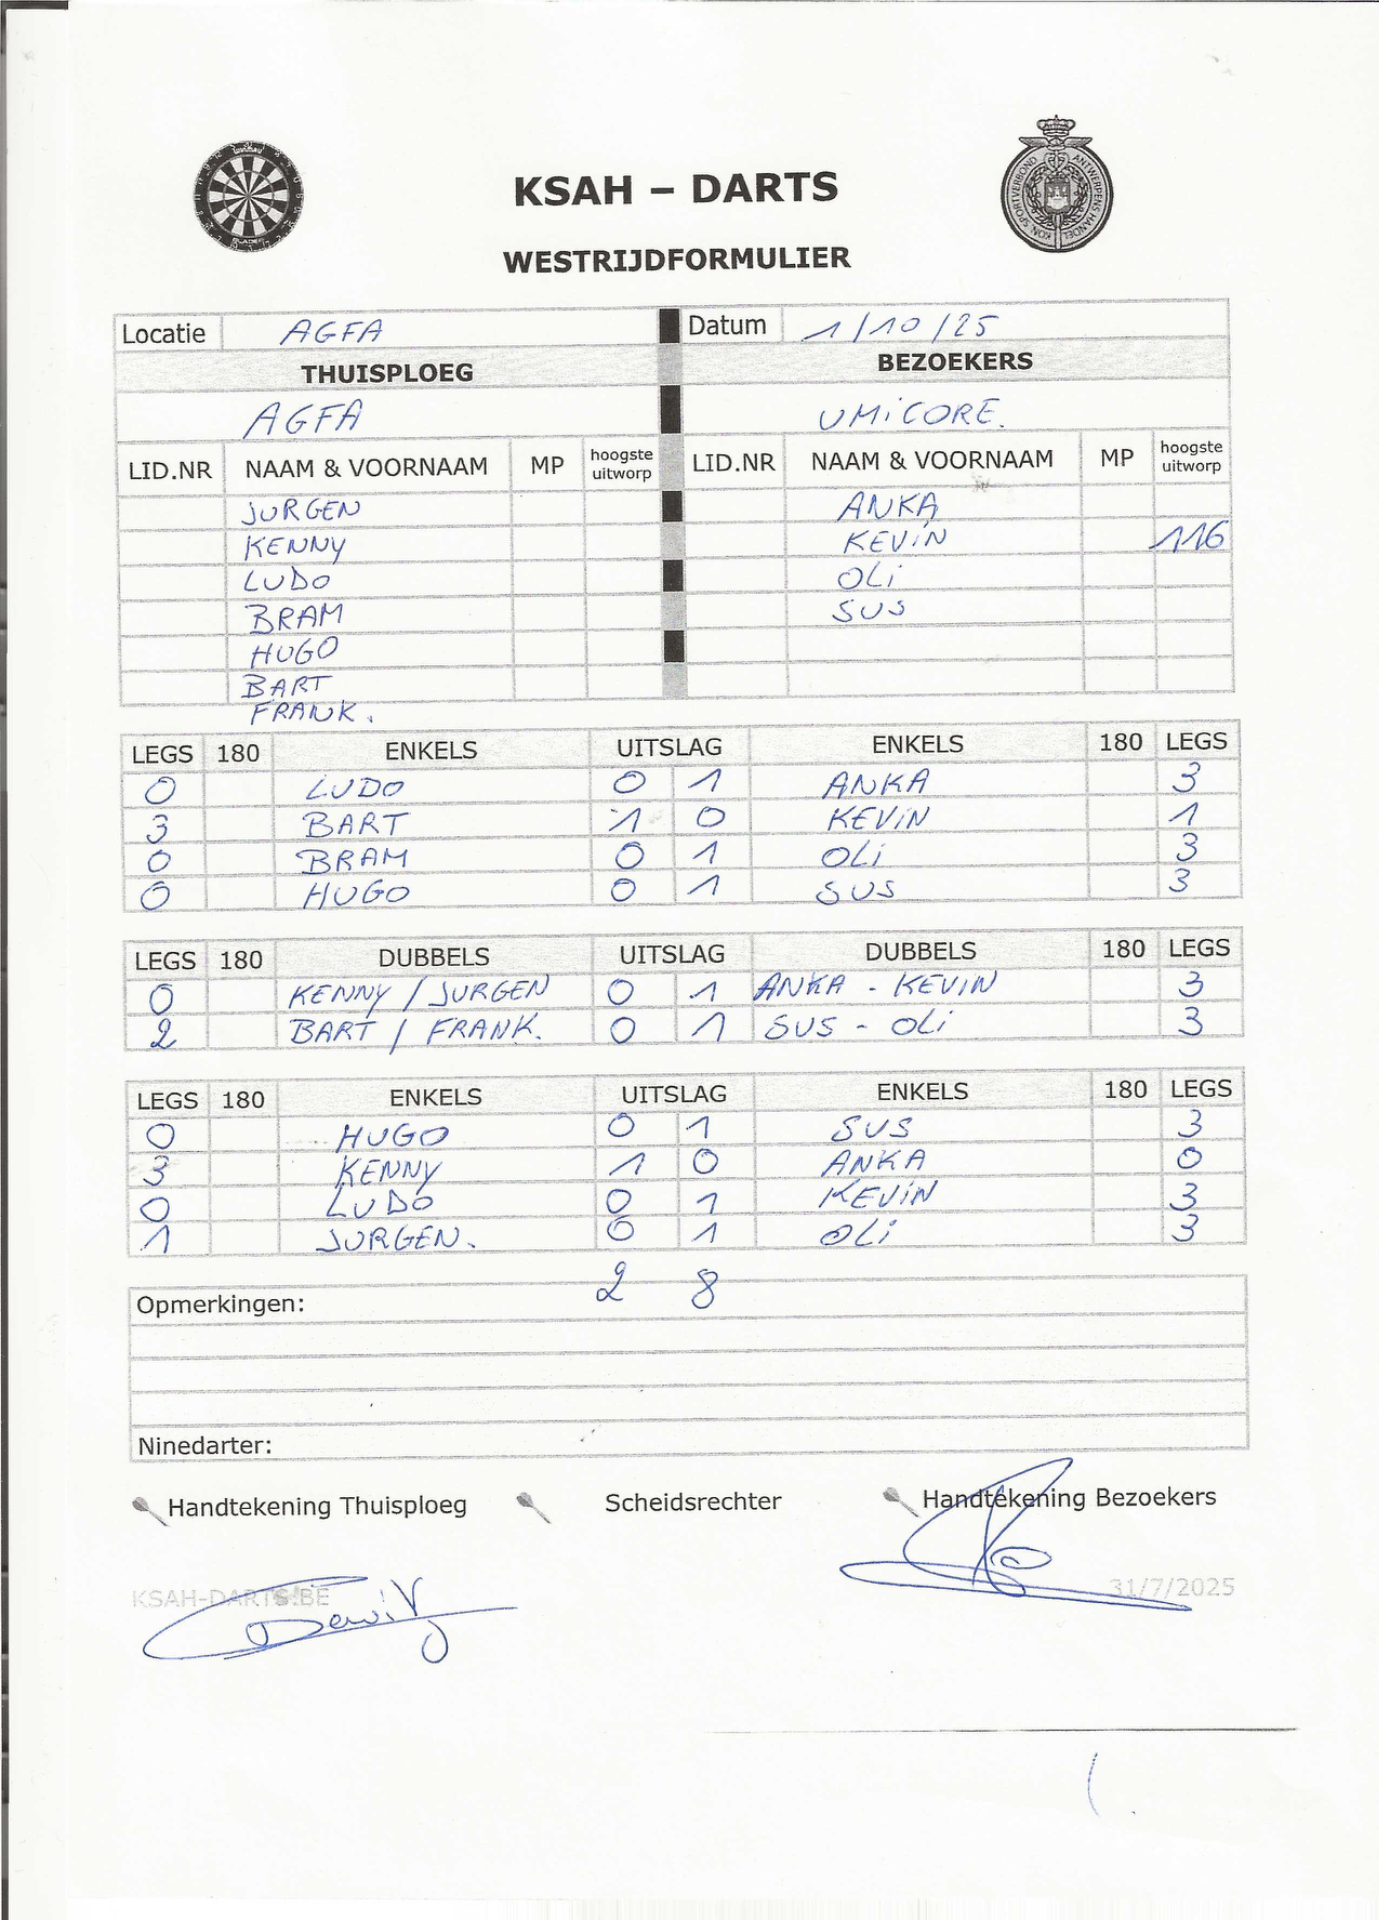 KSAH – DARTS
KON. SPORTVERBOND ANTWERPENS HANDEL
WESTRIJDFORMULIER
Locatie AGFA Datum 1/10/25
THUISPLOEG BEZOEKERS
AGFA UMiCORE.
LID.NR NAAM & VOORNAAM MP hoogste uitworp LID.NR NAAM & VOORNAAM MP hoogste uitworp
JURGEN ANKA
KENNY KEViN 116
LUDO OLi
BRAM SUS
HUGO
BART
FRANK.
LEGS 180 ENKELS UITSLAG ENKELS 180 LEGS
0 LUDO 0 1 ANKA 3
3 BART 1 0 KEViN 1
0 BRAM 0 1 OLi 3
0 HUGO 0 1 SUS 3
LEGS 180 DUBBELS UITSLAG DUBBELS 180 LEGS
0 KENNY / JURGEN 0 1 ANKA - KEVIN 3
2 BART / FRANK. 0 1 SUS - OLi 3
LEGS 180 ENKELS UITSLAG ENKELS 180 LEGS
0 HUGO 0 1 SUS 3
3 KENNY 1 0 ANKA 0
0 LUDO 0 1 KEViN 3
1 JURGEN. 0 1 OLi 3
2 8
Opmerkingen:
Ninedarter:
Handtekening Thuisploeg Scheidsrechter Handtekening Bezoekers
KSAH-DARTS.BE 31/7/2025